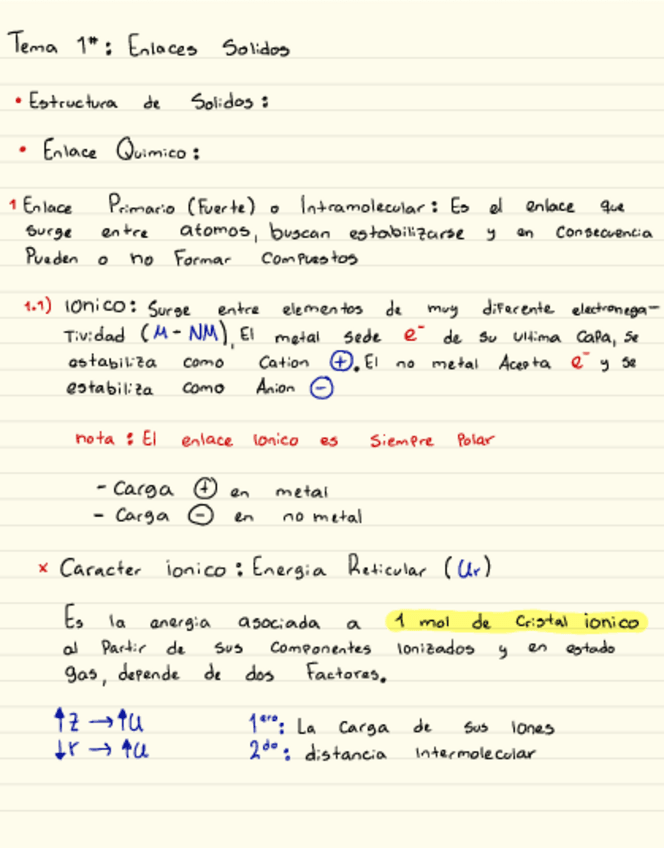 Tema 1#: Enlaces Solidos
• Estructura de Solidos:
• Enlace Quimico:
1 Enlace Primario (Fuerte) o Intramolecular: Es el enlace que
surge entre atomos, buscan estabilizarse y en consecuencia
Pueden o no Formar Compuestos
1.1) Ionico: Surge entre elementos de muy diferente electronega-
Tividad (M-NM), El metal sede e⁻ de su ultima capa, se
estabiliza como Cation ⊕. El no metal Acepta e⁻ y se
estabiliza como Anion ⊖
nota: El enlace Ionico es Siempre Polar
- Carga ⊕ en metal
- Carga ⊖ en no metal
x Caracter ionico: Energia Reticular (Ur)
Es la energia asociada a 1 mol de Cristal ionico
al Partir de sus Componentes Ionizados y en estado
gas, depende de dos Factores.
↑Z → ↑U 1ero: La Carga de sus Iones
↓r → ↑U 2do: distancia Intermolecular